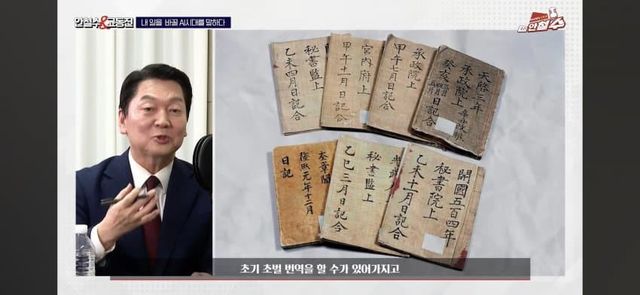 안철수&고동진
내 일을 바꿀 AI시대를 말하다
안철수
秘書監上
乙未四月日記合
宮內府上
甲午十一月日記合
承政院上
甲午七月日記合
天啓三年
承政院上
癸亥
日記合
奎章閣
隆熙元年十二月
日記
秘書監上
乙巳三月日記合
開國五百四年
秘書院上
乙未十一月日記合
초기 초벌 번역을 할 수가 있어가지고